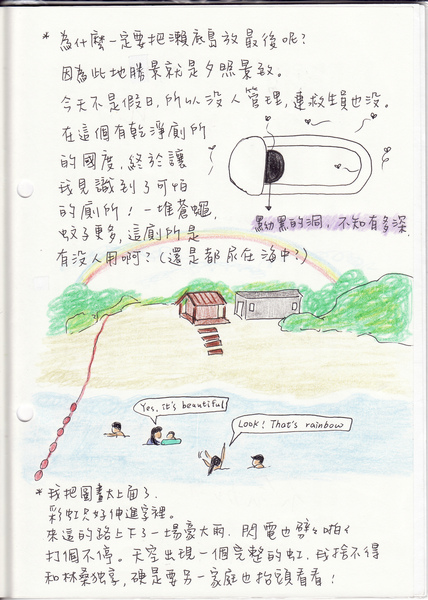 * 為什麼一定要把瀨底島放最後呢?
因為此地勝景就是夕照景致。
今天不是假日,所以沒人管理,連救生員也沒。
在這個有乾淨廁所
的國度,終於讓
我見識到了可怕
的廁所!一堆蒼蠅,
蚊子更多,這廁所是
有沒人用啊?(還是都尿在海中?)
黑幼黑的洞,不知有多深
Yes, it's beautiful
Look! That's rainbow
* 我把圖畫太上面了,
彩虹只好伸進字裡。
來這的路上下了一場豪大雨,閃電也劈哩啪啦
打個不停。天空出現一個完整的虹,我捨不得
和林桑獨享,硬是要另一家庭也抬頭看看!